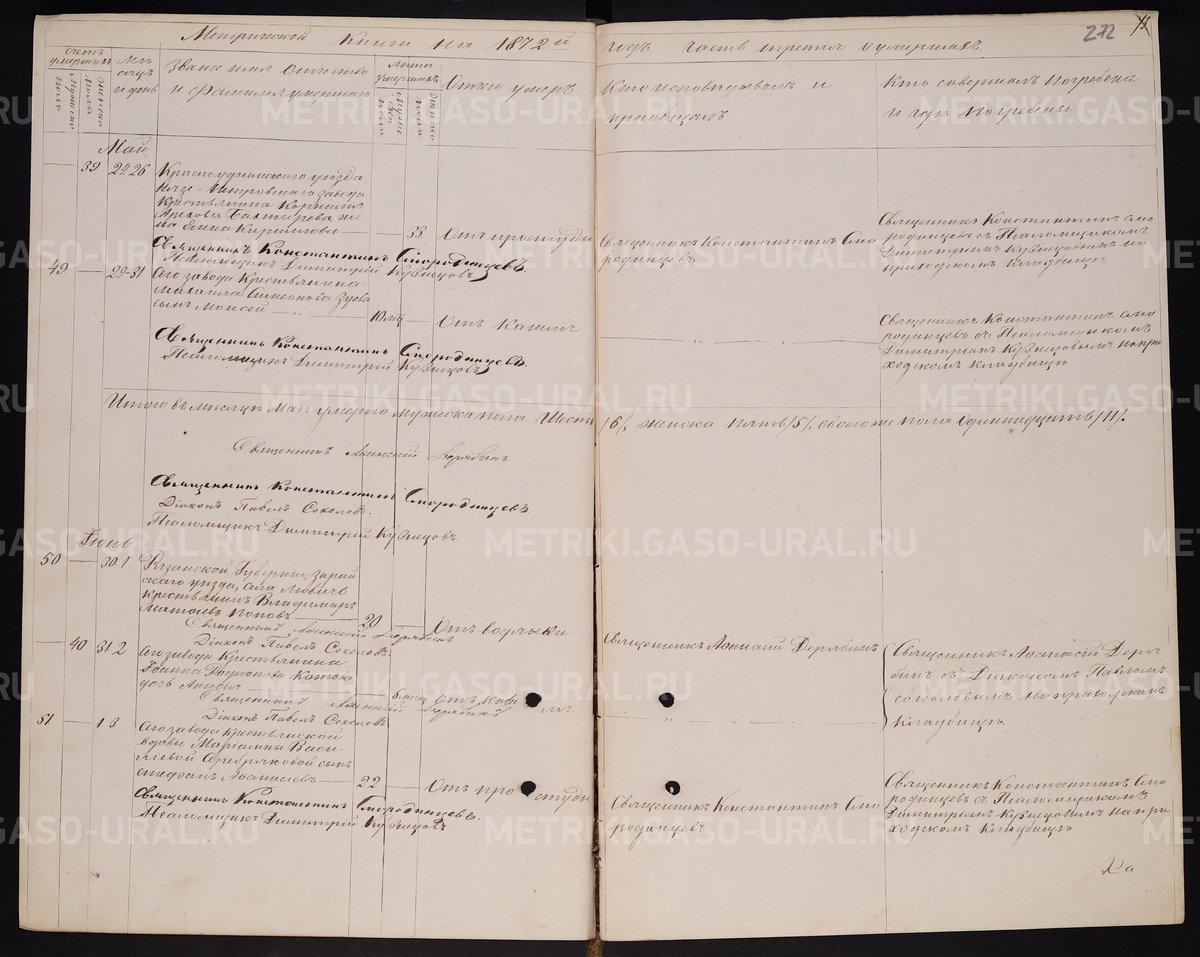 Метрической книги на 1872й годъ часть третiя о умершихъ.
272
Счетъ умершихъ
Мужеско полъ
Женско пола
Мѣсяцъ и день
Званiе имя Отчество
и Фамилiя умершаго
Лѣта умершихъ
Мужес кой пола
Женско пола
Отъ чего умеръ
Кто исповѣдывалъ и
прiобщалъ
Кто совершалъ погребенiе
и гдѣ погребены
Май
39
24. 26
Красноуфимскаго уѣзда
Нязе-Петровскаго завода
Крестьянина
жена
33
Отъ простуды
Священникъ Константинъ Смо
родинцевъ.
Священникъ Константинъ Смо
родинцевъ съ Псаломщикомъ
Димитрiемъ Кузнецовымъ на
приходскомъ кладбищѣ
Священникъ Константинъ Смородинцевъ.
Псаломщикъ Димитрiй Кузнецовъ
49
29-31
Сего завода Крестьянина
Михаила Симеонова Зуева
сынъ Моисей
10 мѣ
Отъ кашля
Священникъ Константинъ Смо
родинцевъ съ Псаломщикомъ
Димитрiемъ Кузнецовымъ на при
ходскомъ кладбищѣ
Священникъ Константинъ Смородинцевъ.
Псаломщикъ Димитрiй Кузнецовъ
Итого въ мѣсяцѣ Маѣ умерло мужеска пола Шесть /6/, женска пять /5/, обоего же пола Одиннадцать /11/.
Священникъ Дерябинъ
Священникъ Константинъ Смородинцевъ
Дiаконъ Павелъ Соколовъ.
Псаломщикъ Димитрiй Кузнецовъ.
Iюнь
50
30. 1
Рязанской Губернiи, Зарай
скаго уѣзда, села Ловичъ
крестьянинъ Владимiръ
Поповъ
20
Отъ водянки
Священникъ Аѳанасiй Дерябинъ
Священникъ Аѳанасiй Деря
бинъ съ Дiакономъ Павломъ
Соколовымъ на приходскомъ
кладбищѣ.
Священникъ Дерябинъ
Дiаконъ Павелъ Соколовъ.
40
31. 2
Сего завода Крестьянина
Iоанна
дочь
6 мѣс
Отъ каш ля
Священникъ Дерябинъ
Дiаконъ Павелъ Соколовъ
51
1. 3
Сего завода Крестьянской
вдовы Марiанны Васи
льевой Серебряковой сынъ
Стефанъ Аѳанасiевъ
22
Отъ про студы
Священникъ Константинъ Смо
родинцевъ
Священникъ Константинъ Смо
родинцевъ съ Псаломщикомъ
Димитрiемъ Кузнецовымъ на при
ходскомъ кладбищѣ.
Священникъ Константинъ Смородинцевъ.
Псаломщикъ Димитрiй Кузнецовъ
METRIKI.GASO-URAL.RU